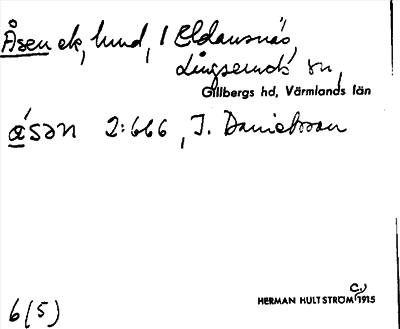 Åsen ek, hund, 1 Eldansnäs,
Långseruds sn,
Gillbergs hd, Värmlands län
åsən 2:666, J. Danielsson
HERMAN HULTSTRÖM C.1915
6(5)